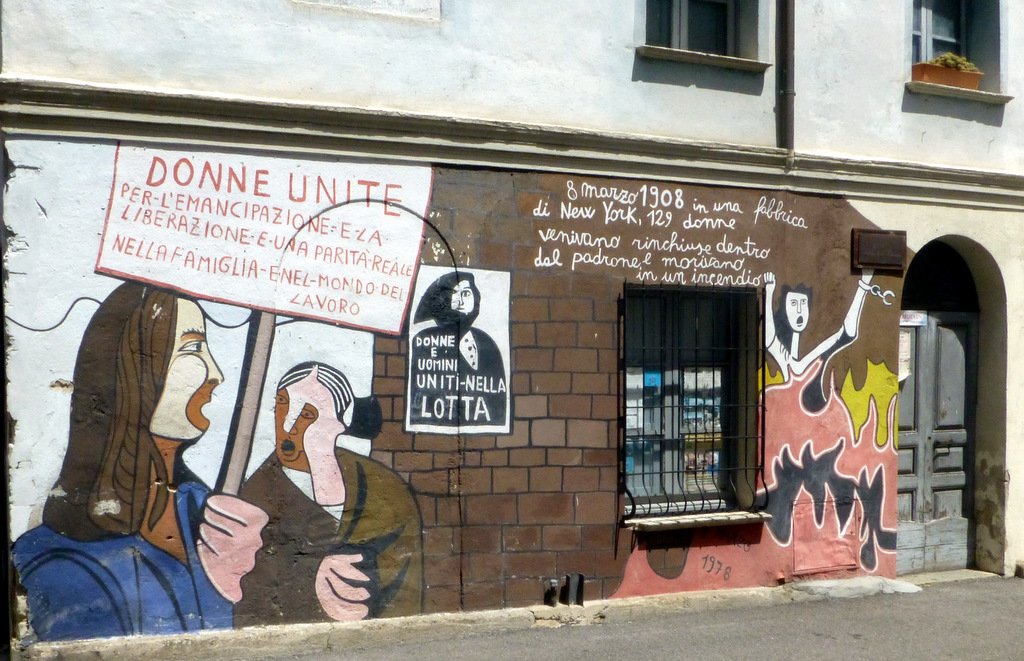 DONNE UNITE
PER-L'EMANCIPAZIONE-E-LA
LIBERAZIONE-E-UNA PARITA-REALE
NELLA FAMIGLIA-E NEL-MONDO-DEL
LAVORO
DONNE
E
UOMINI
UNITI-NELLA
LOTTA
8 marzo 1908 in una fabbrica
di New York, 129 donne
venivano rinchiuse dentro
dal padrone, e morivano
in un incendio
1978